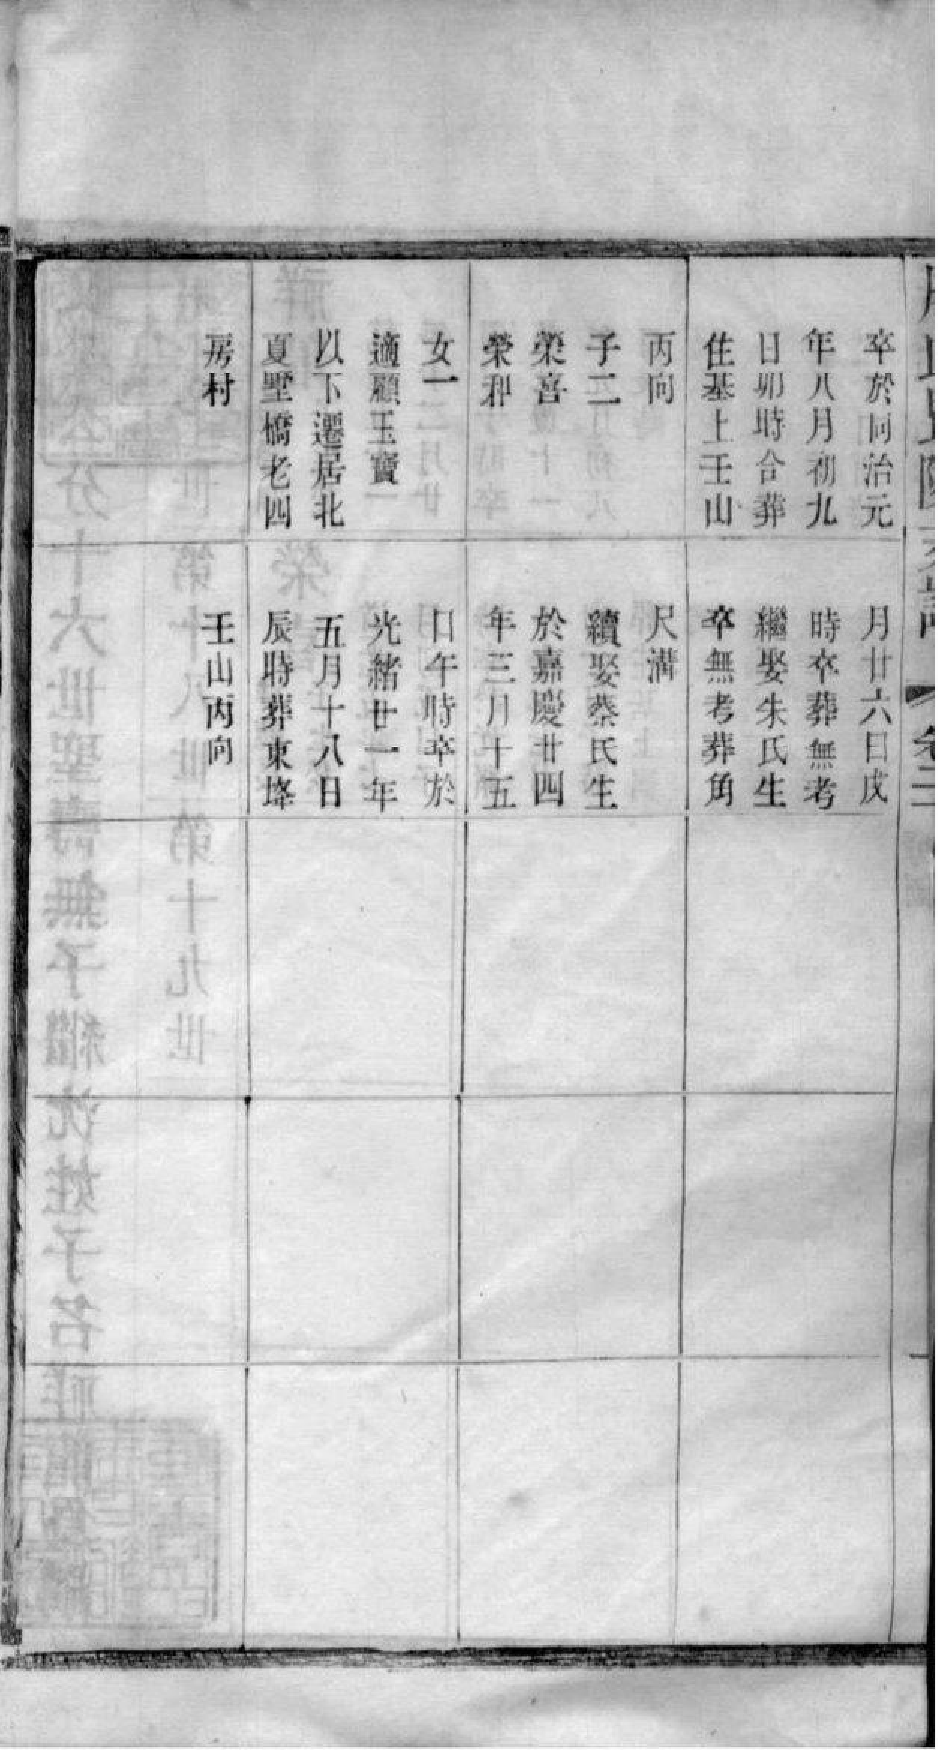 卒於同治元
年八月初九
日卯時合葬
住基上壬山
丙向
子二
榮喜
榮和
女一
適顧玉寶
以下遷居北
夏墅橋老四
房村
月廿六日戌
時卒葬無考
繼娶朱氏生
卒無考葬角
尺溝
續娶蔡氏生
於嘉慶廿四
年三月十五
日午時卒於
光緒廿一年
五月十八日
辰時葬東垶
壬山丙向
卷二